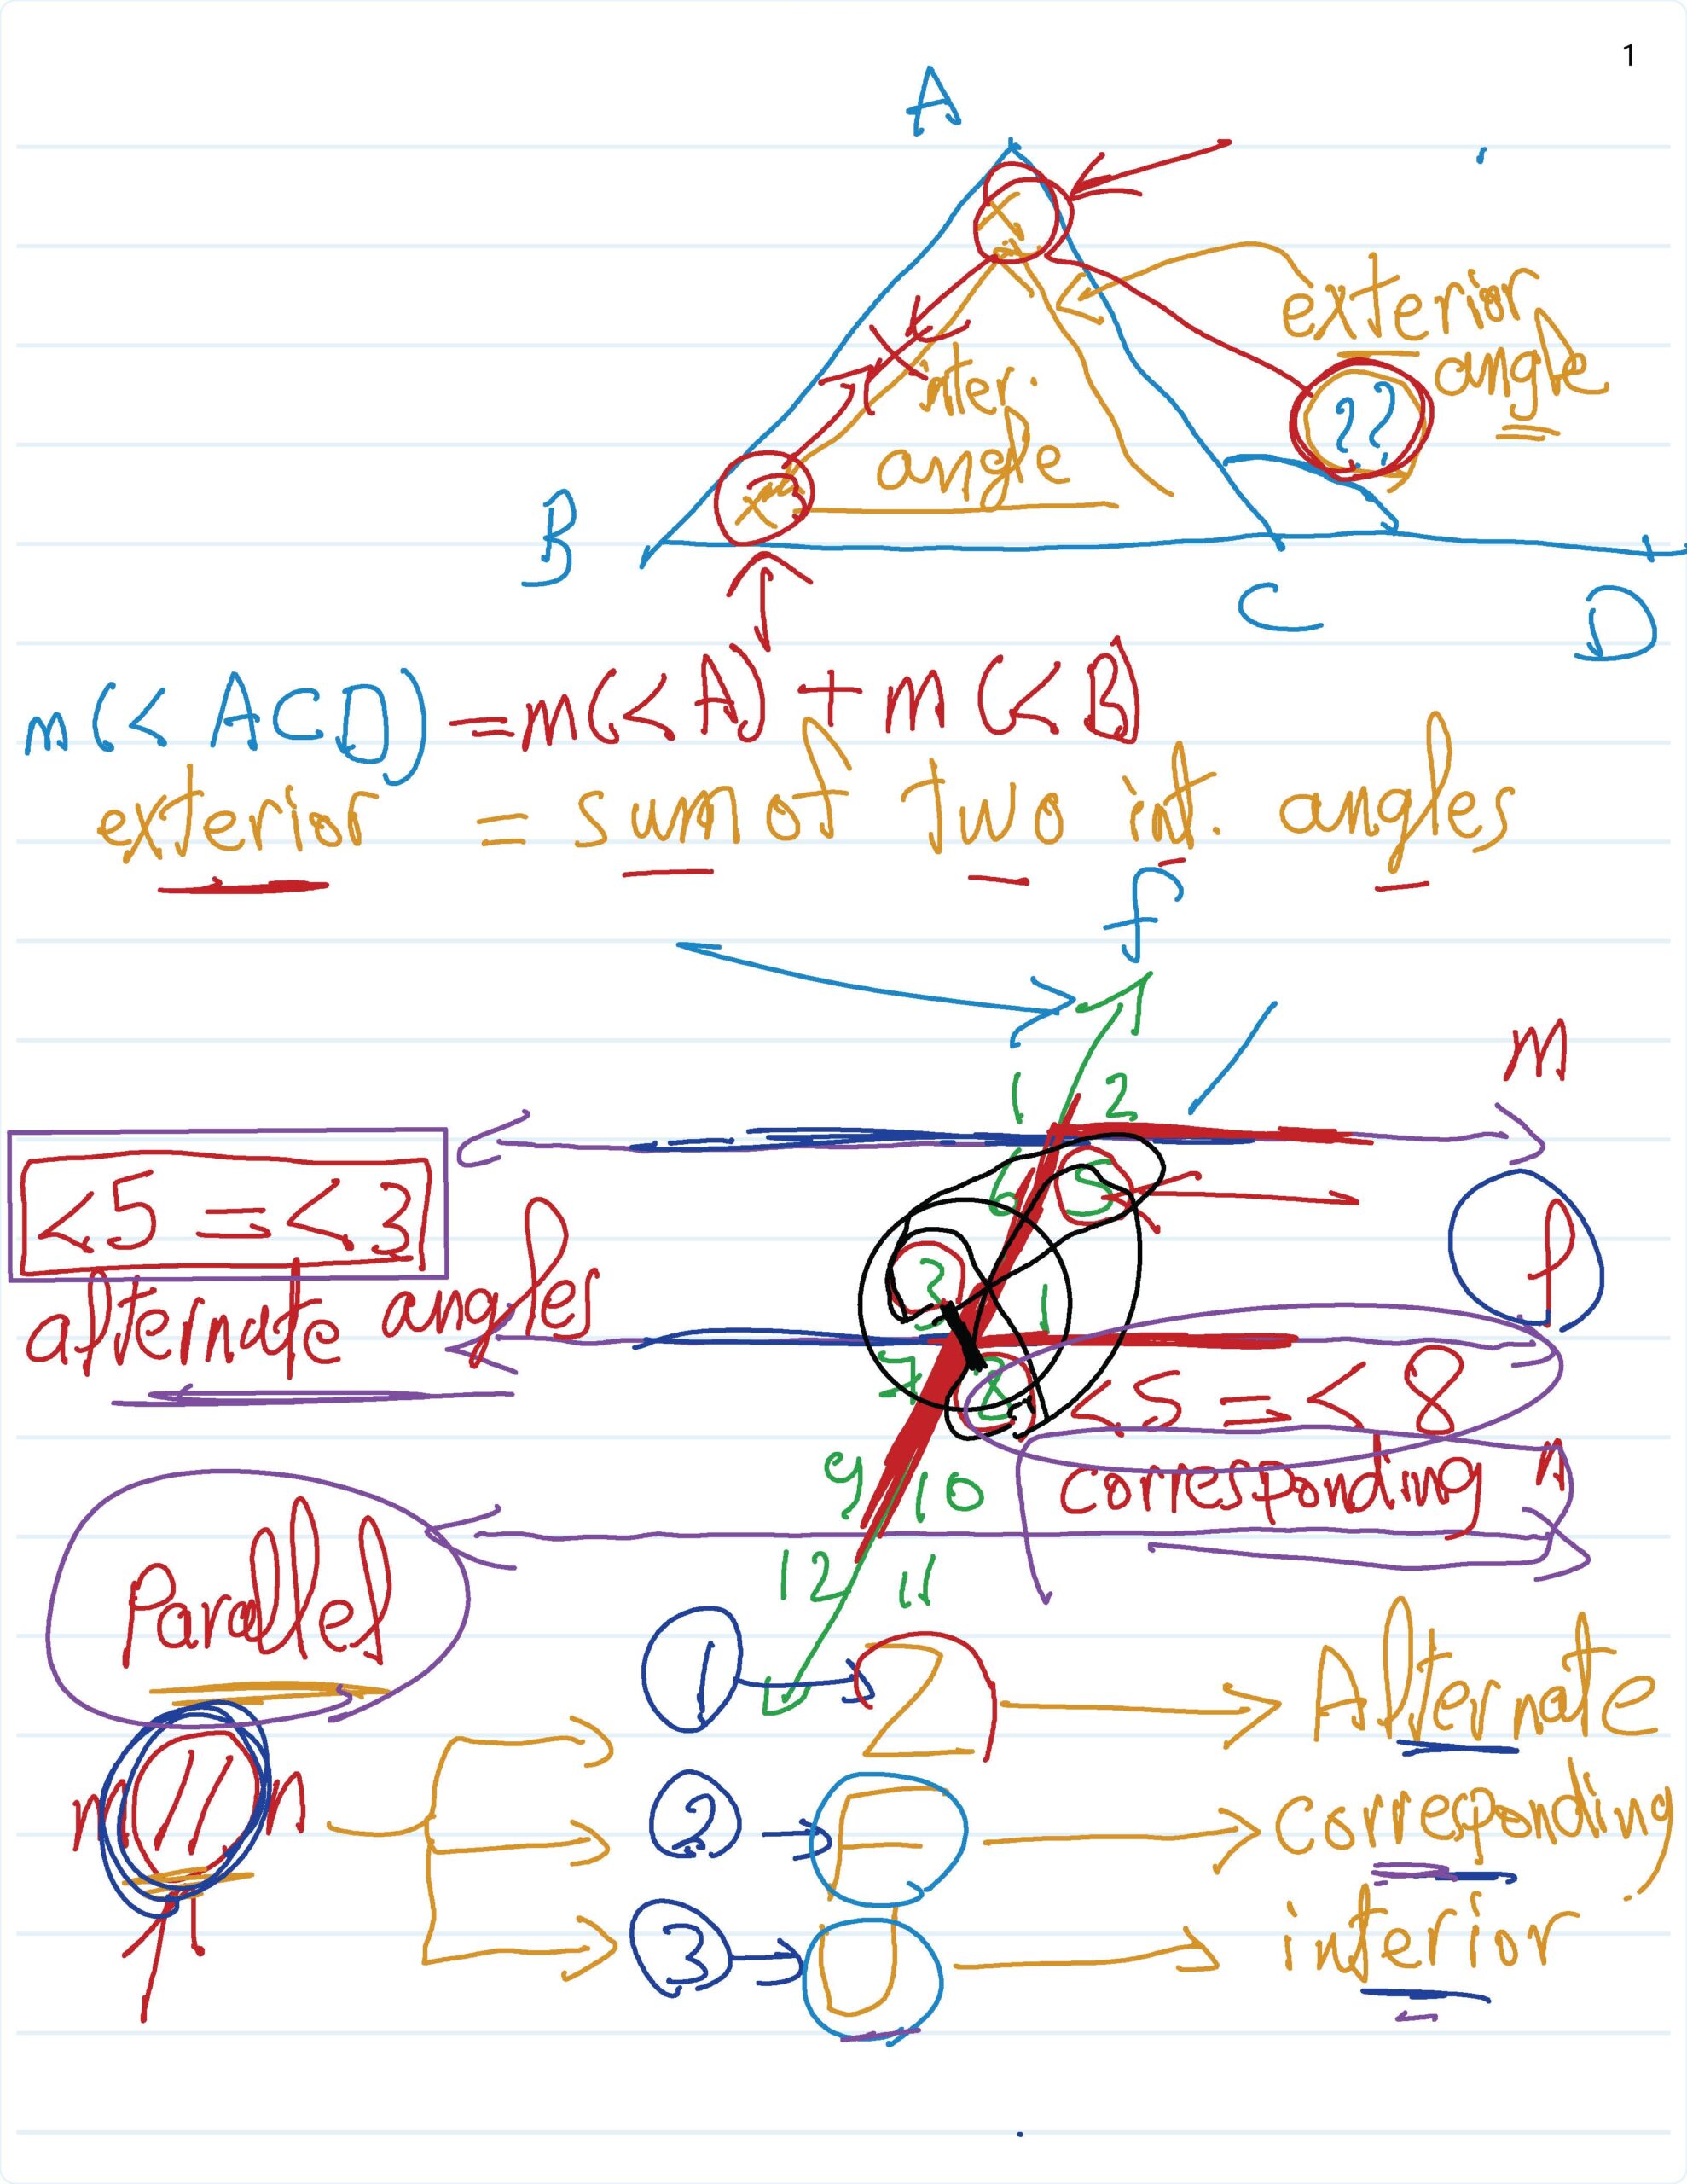 1
A
exterior
angle
??
inter.
angle
B
C
D
m(< ACD) = m(< A) + m(< B)
exterior = sum of two int. angles
F
m
1 2
6 5
<5 = <3
alternate angles
3 1
P
7 8
<5 = <8
corresponding
n
9 10
12 11
Parallel
1 Z Alternate
m // n
2 F corresponding
3 U interior